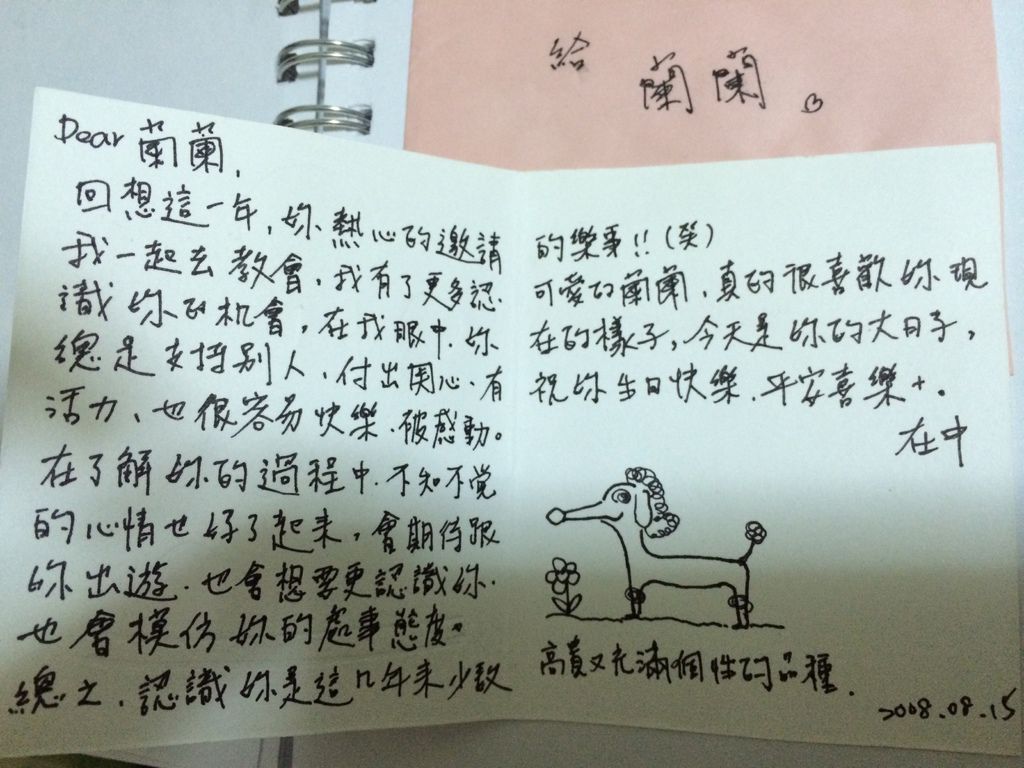 給 蘭蘭。
Dear 蘭蘭,
回想這一年,妳熱心的邀請
我一起去教會,我有了更多認
識妳的机會,在我眼中,妳
總是支持別人,付出関心,有
活力,也很容易快樂,被感動。
在了解妳的過程中,不知不覚
的心情也好了起来,會期待跟
妳出遊,也會想要更認識妳,
也會模仿妳的處事態度。
總之,認識妳是這几年来少数
的樂事!!(笑)
可愛的蘭蘭,真的很喜歡妳現
在的樣子,今天是妳的大日子,
祝妳生日快樂,平安喜樂+。
在中
高貴又充滿個性的品種.
2008.08.15